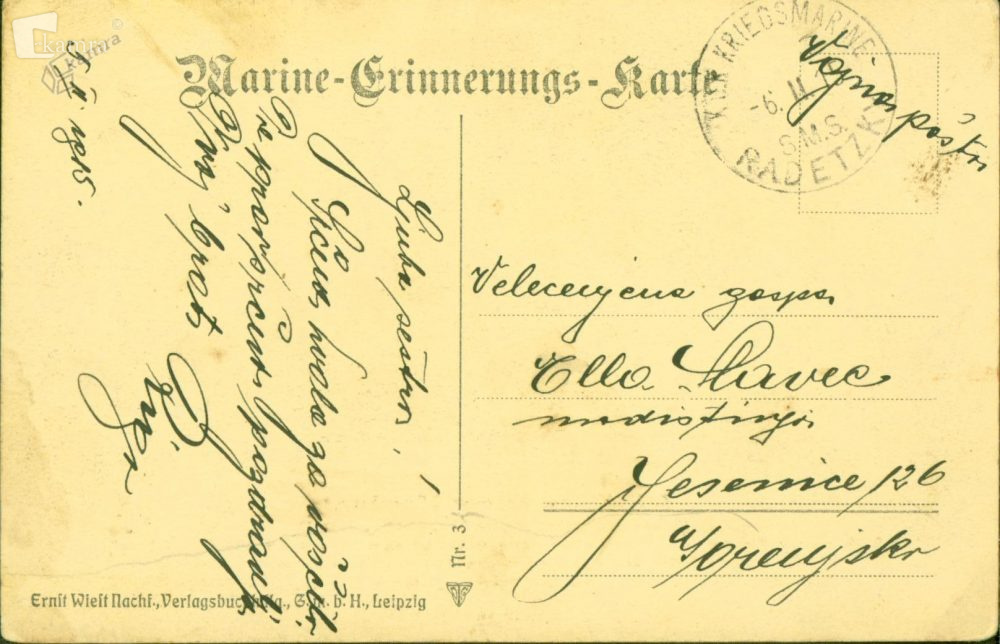 kamra
kamra
5 II 1915.
Marine-Erinnerungs-Karte
K.U.K. KRIEGSMARINE
-6. II
S.M.S.
RADETZKY
Vojna pošta
Ljuba sestra!
So
srčna hvala za
Te prav srčno pozdravlja
Tvoj brat
Velecenjena gospa
Ella Slavec
modistinja
Jesenice 126
Gorenjsko
Nr. 3
Ernst Wiest Nachf., Verlagsbuchhdlg., G. m. b. H., Leipzig